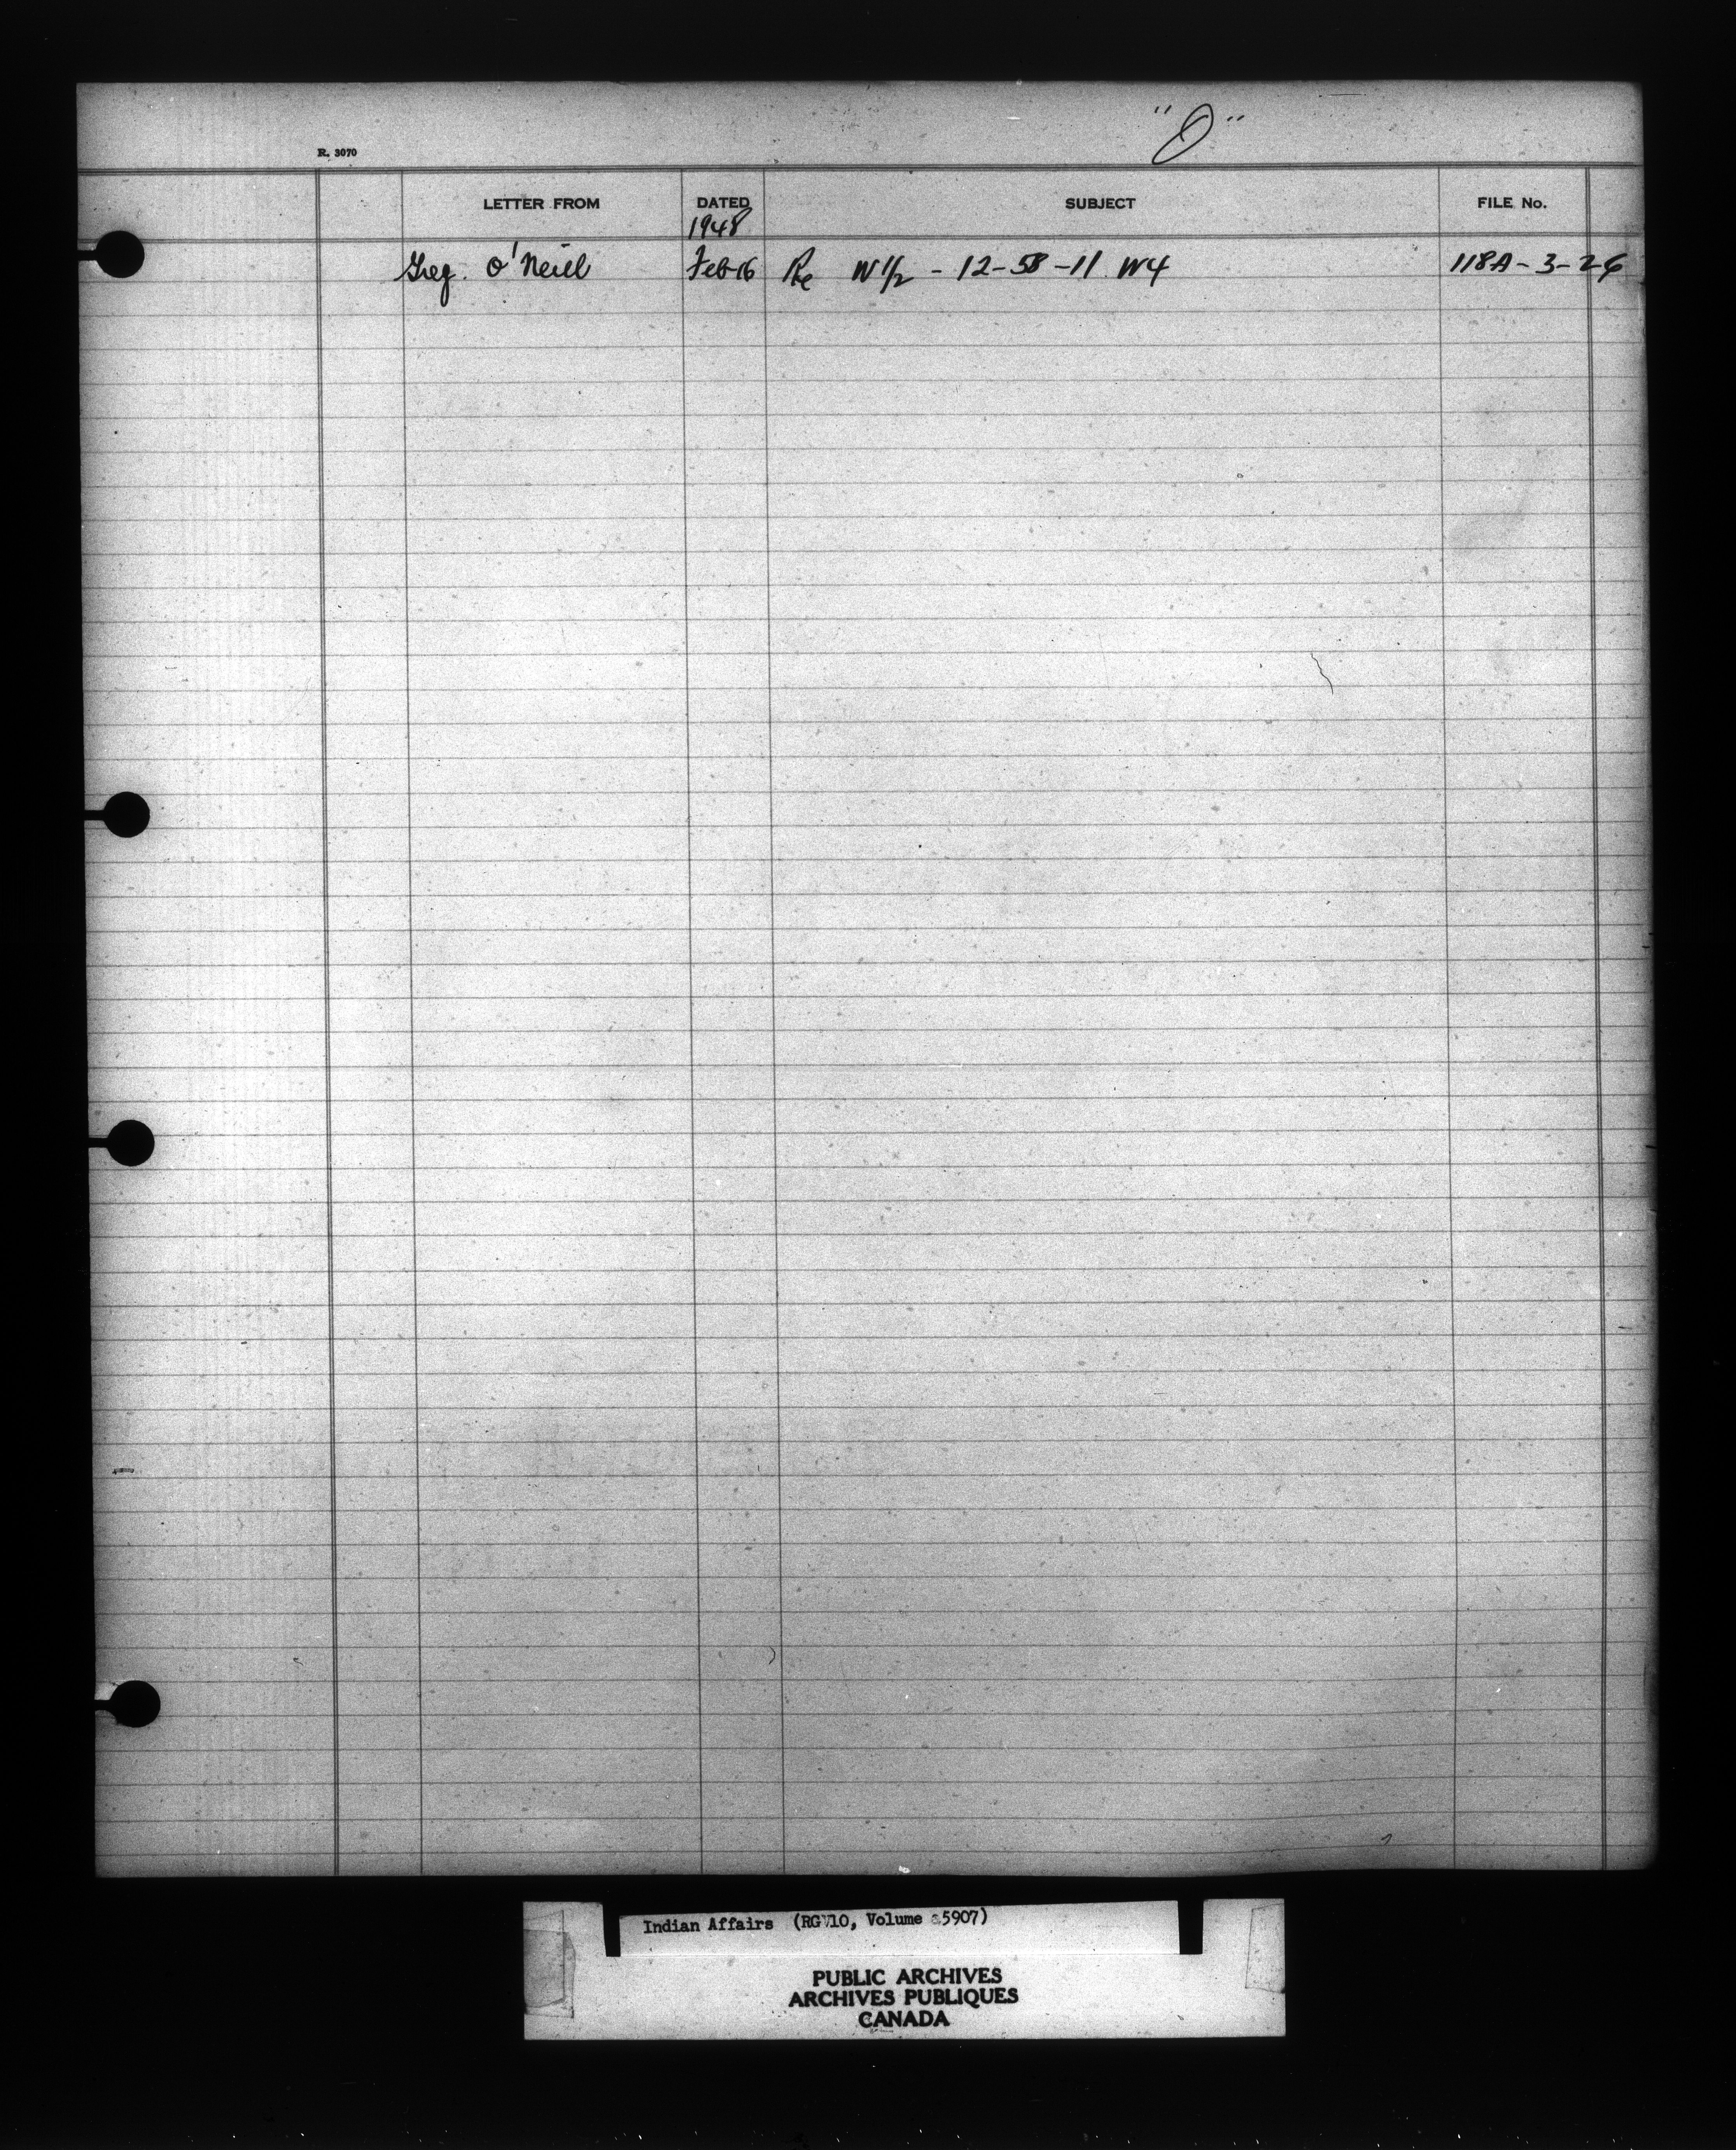 "O"
R. 3070
LETTER FROM DATED SUBJECT FILE No.
1948
Greg. O'Neill Feb-16 Re W 1/2 - 12-58-11 W4 118A-3-26
Indian Affairs (RG 10, Volume 5907)
PUBLIC ARCHIVES
ARCHIVES PUBLIQUES
CANADA